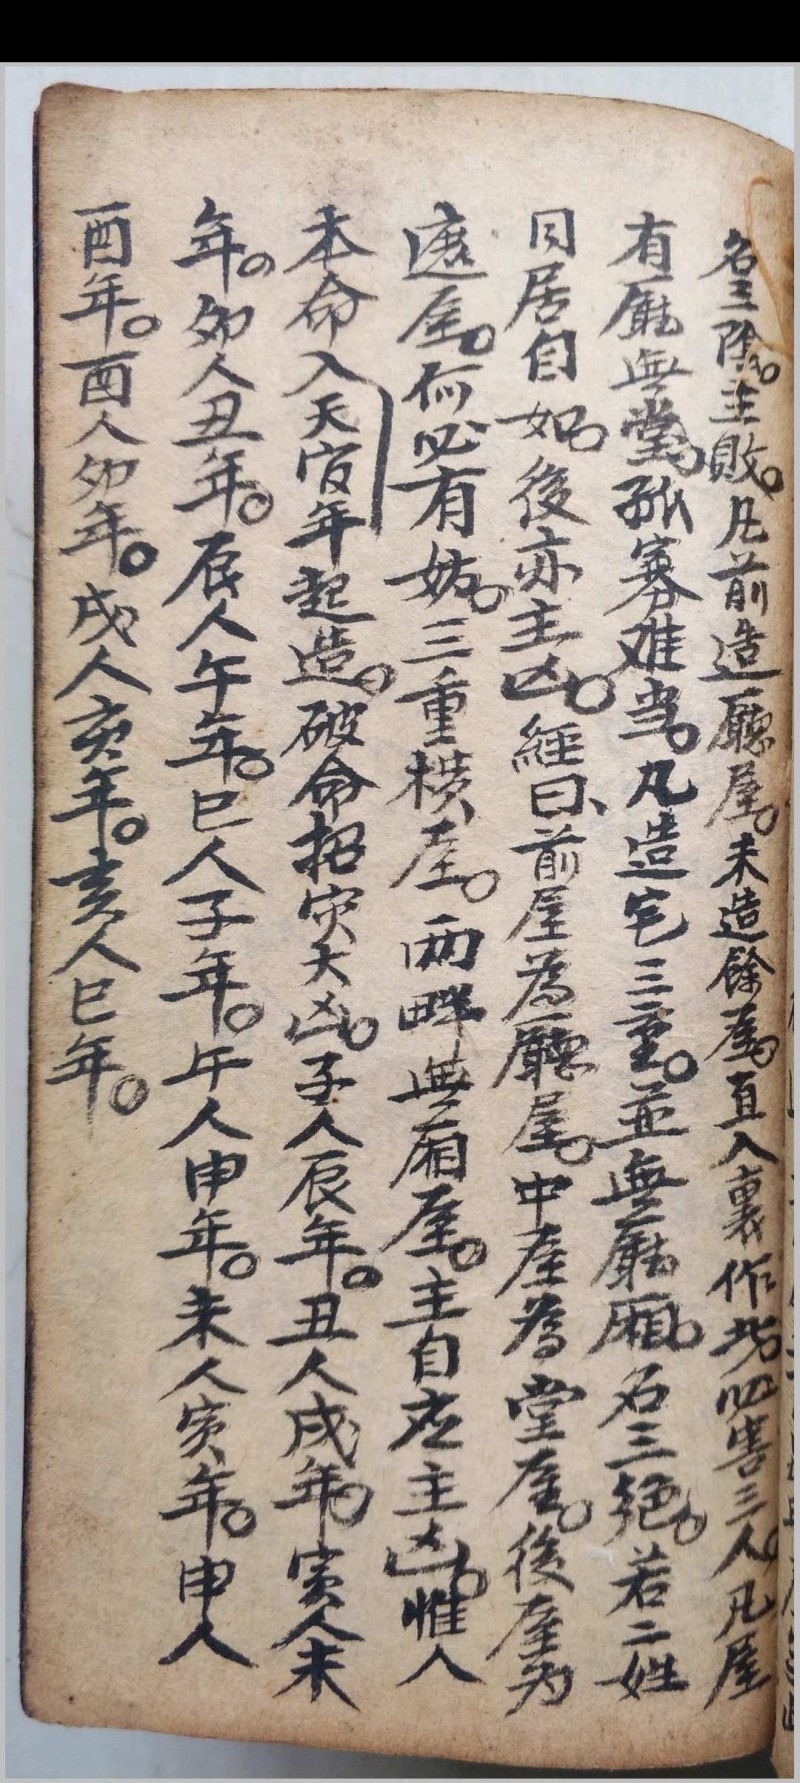 名三陰。主敗。凡前造廳屋。未造餘屋。直入裏作場。必害三人。凡屋
有廰無堂。孤寡难当。凡造宅三重。並無廰厢。名三絕。若二姓
同居自如。後亦主凶。經曰、前屋為廳屋。中屋為堂屋。後屋为
遮屋。何必有妨。三重橫屋。兩畔無廂屋。主自应主凶。惟人
本命入天官年起造。破命招灾大凶。子人辰年。丑人戌年。寅人未
年。卯人丑年。辰人午年。巳人子年。午人申年。未人寅年。申人
酉年。酉人卯年。戌人亥年。亥人巳年。